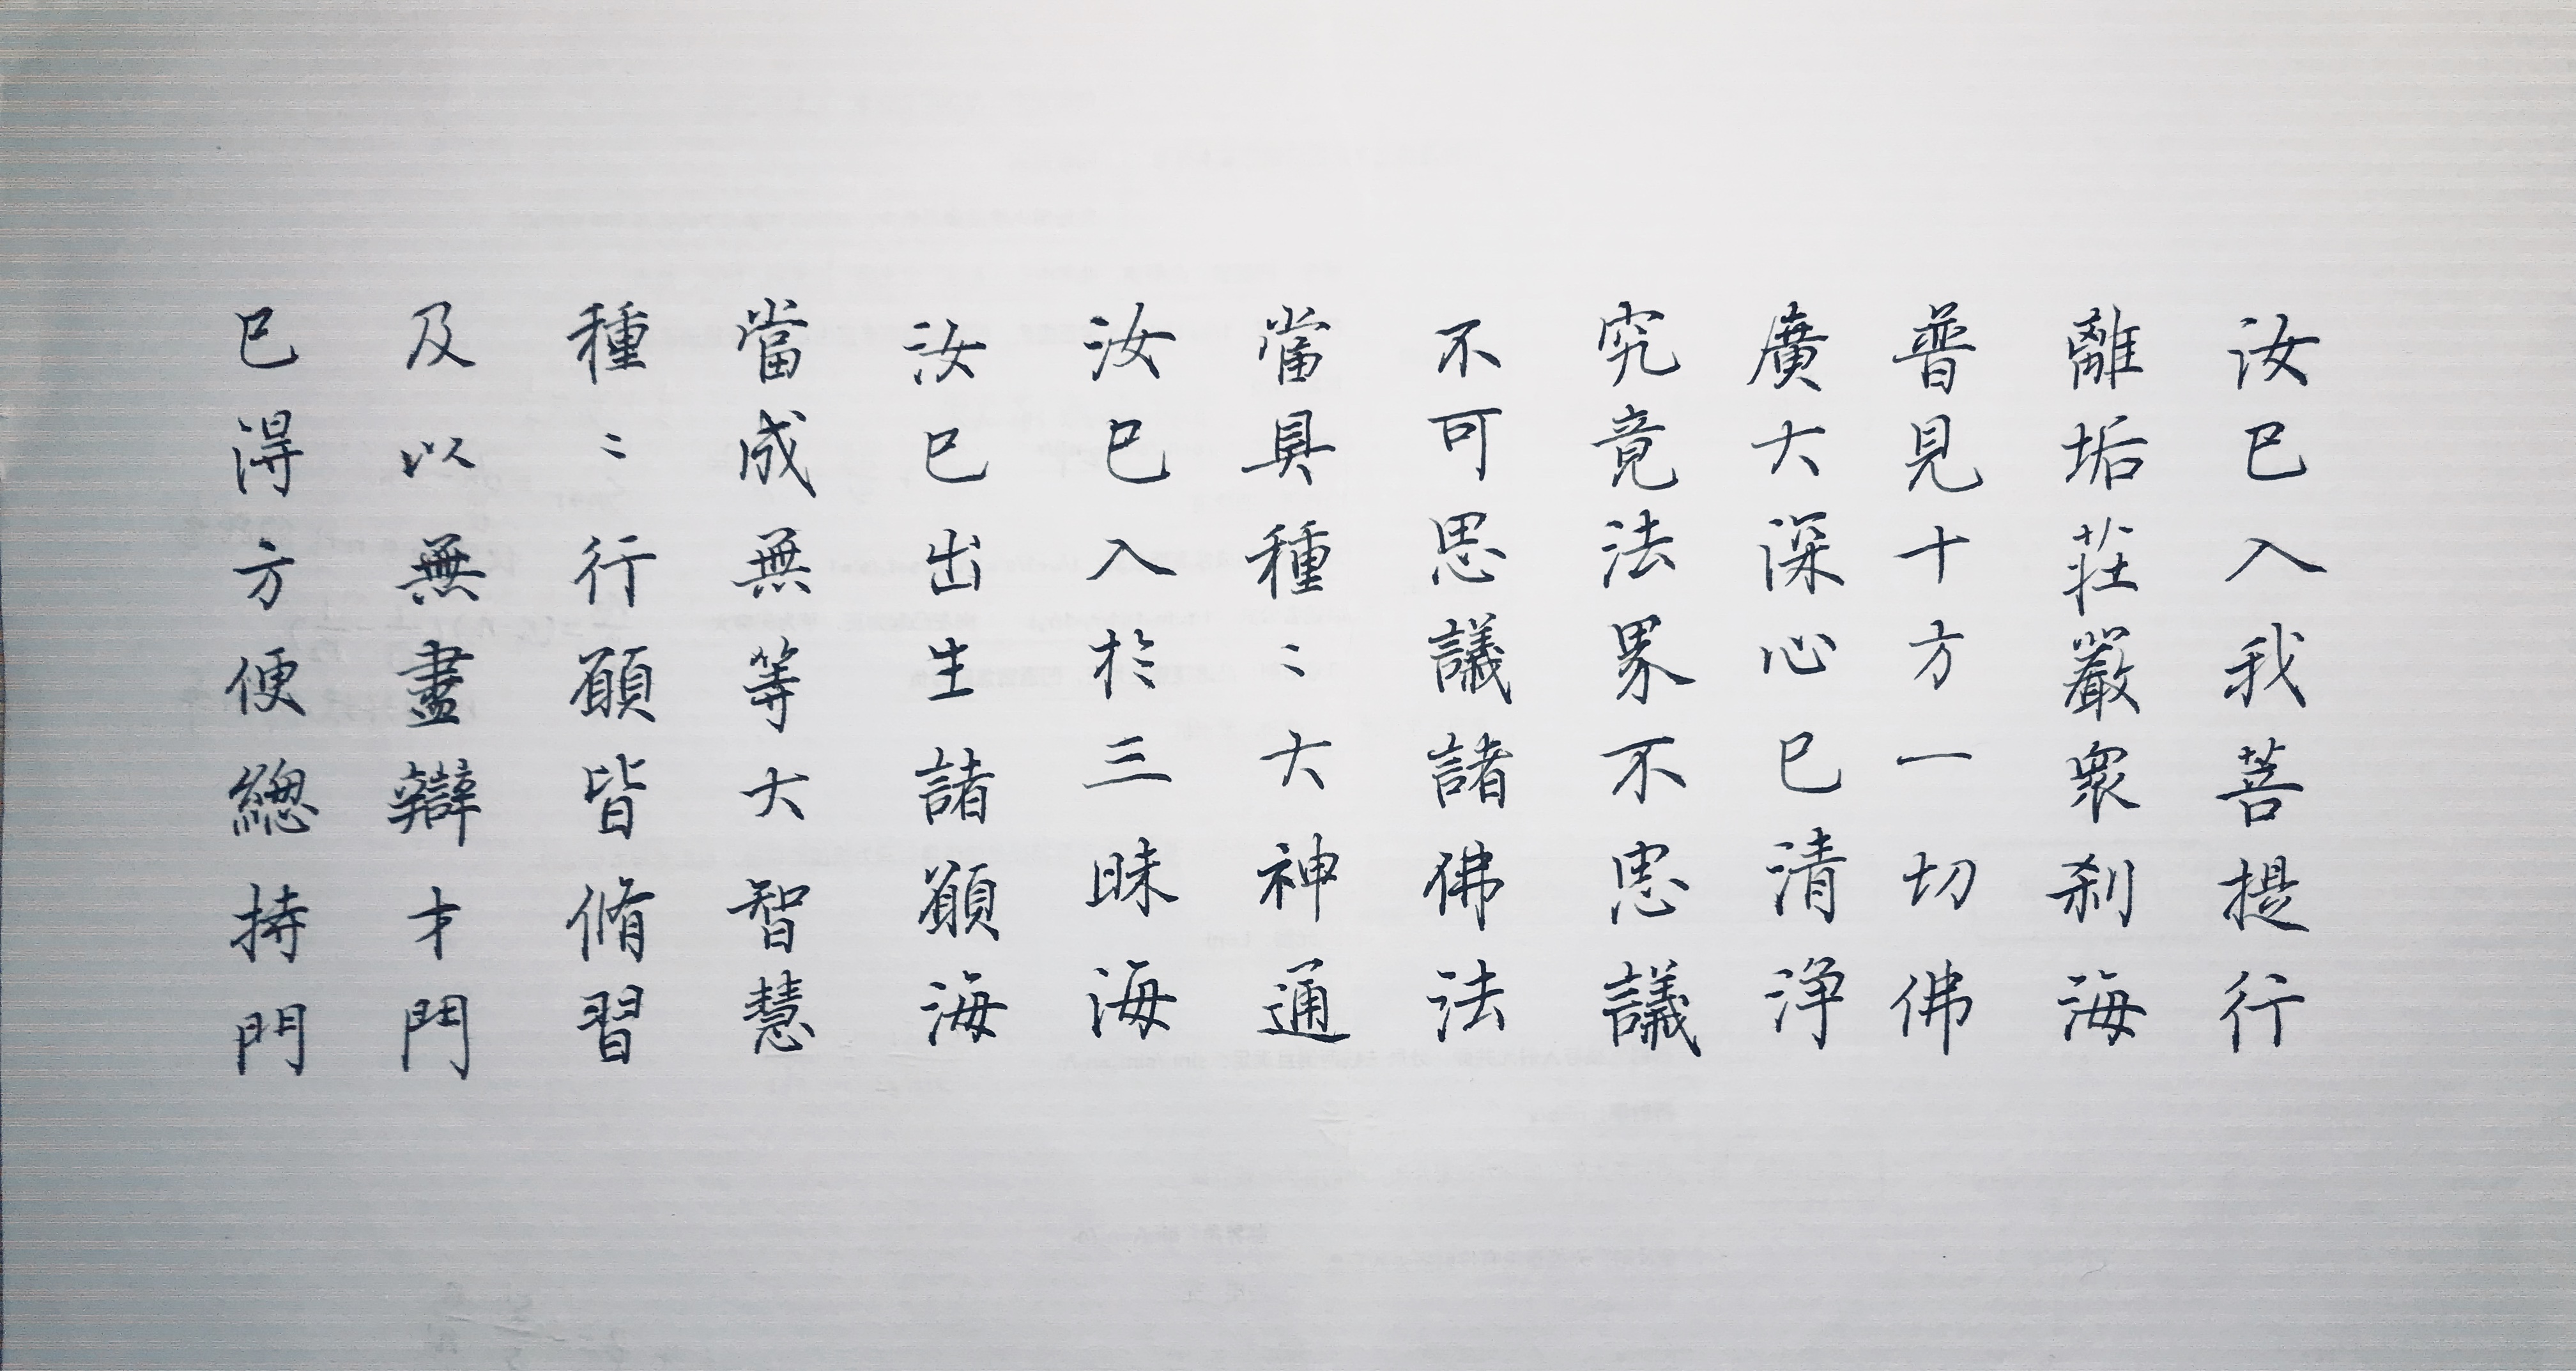 汝已入我菩提行
離垢莊嚴衆刹海
普見十方一切佛
廣大深心已清淨
究竟法界不思議
不可思議諸佛法
當具種〻大神通
汝已入於三昧海
汝已出生諸願海
當成無等大智慧
種〻行願皆脩習
及以無盡辯才門
已得方便總持門